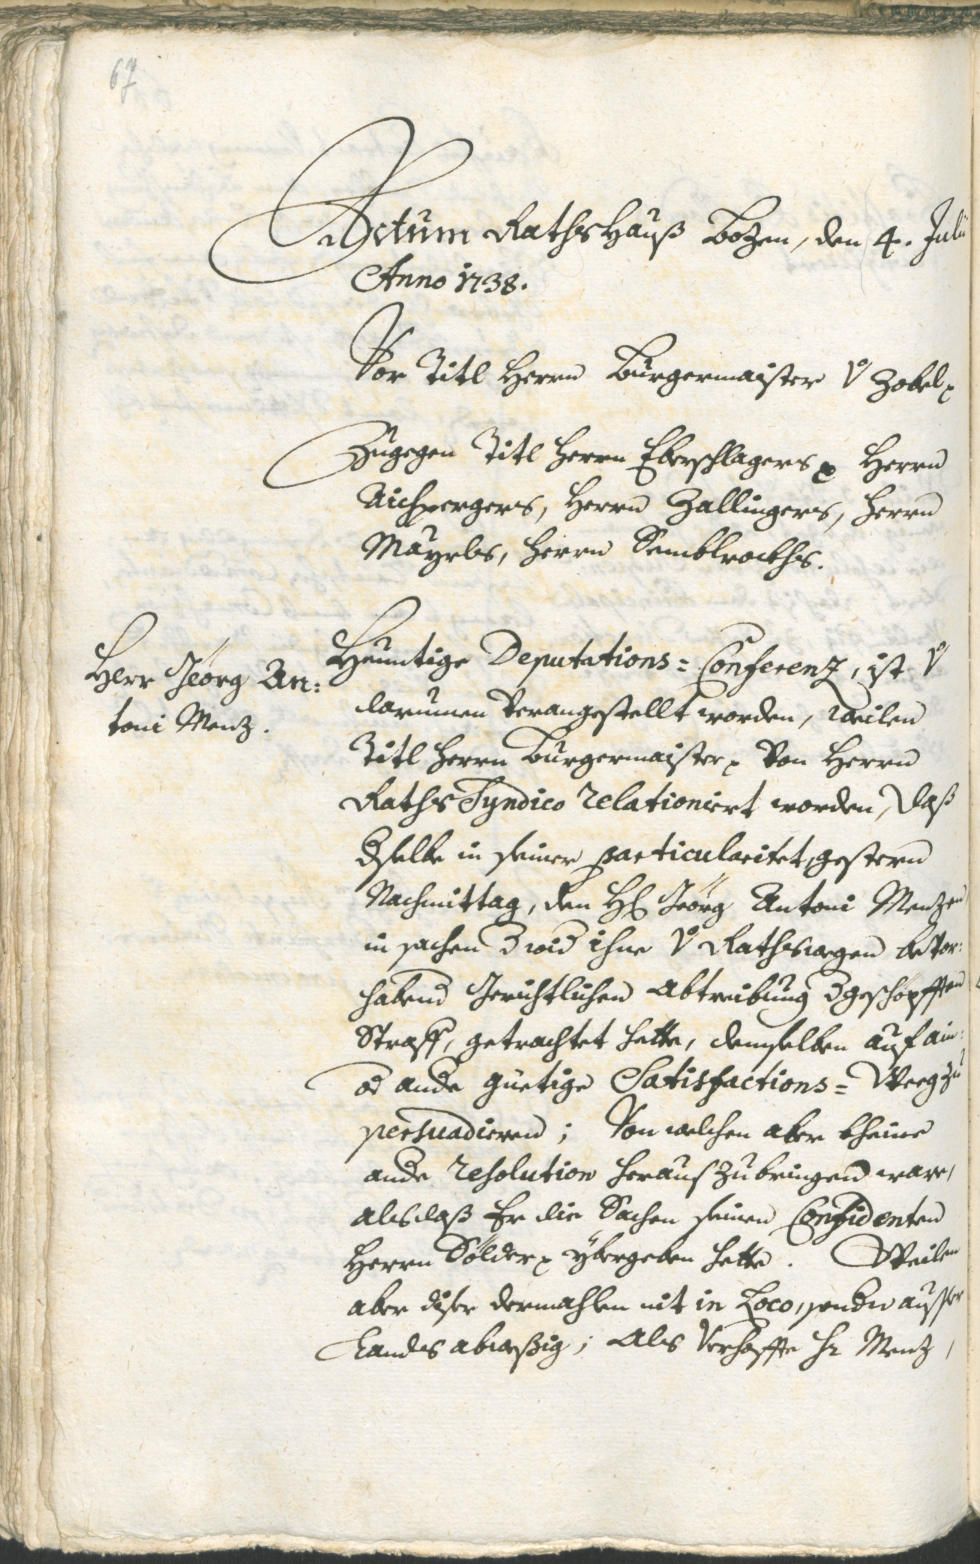 67
Actum Rathshauß Botzen, den 4. Julii
Anno 1738.
Vor Titl Herrn Burgermaister v Zobel
Zugegen Titl Herrn Eberschlagers Herrn
Aichpergers, Herrn Zallingers, Herrn
Mayrls, Herrn
Herr Jeörg An:
toni Menz.
Heuntige Deputations=Conferenz, ist v
darumen Verangestellt worden, weilen
Titl Herrn Burgermaister Von Herrn
Raths Syndico relationiert worden, daß
dselbe in seiner particularitet, gestern
Nachmittag, den H Jeörg Antoni Menzen
in sachen d wid ihne v Rathswegen bevor:
habend Gerichtlichen Abtreibung dgeschöpfften
Straff, getrachtet hette, demselben auf ain:
od ande guetige Satisfactions=Weeg zu
persuadieren; Von welchen aber kheine
ande resolution herauszubringen ware,
als daß Er die Sachen seinen Confidenten
Herrn Sölder ybergeben hette. Weilen
aber diser dermahlen nit in Loco, sondn ausser
Landts abwesßig; Als Verhoffte Hr Menz,